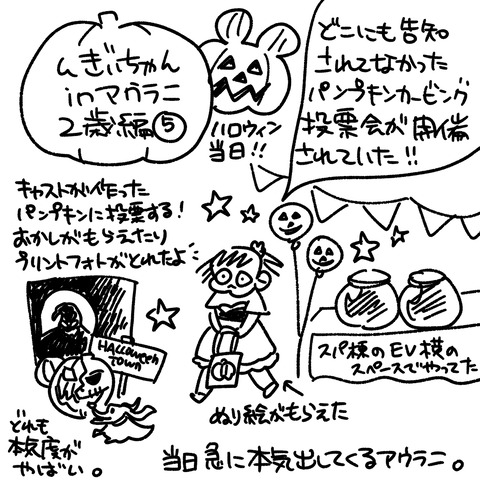 んぎぃちゃん
inアウラニ
2歳編⑤
ハロウィン
当日!!
どこにも告知
されてなかった
パンプキンカービング
投票会が開催
されていた!!
キャストが作った
パンプキンに投票する!
おかしがもらえたり
プリントフォトがとれたよ
HALLOWEEN
TOWN
スパ横のEV横の
スペースでやってた
ぬり絵がもらえた
どれも
本気度が
やばい。
当日急に本気出してくるアウラニ。